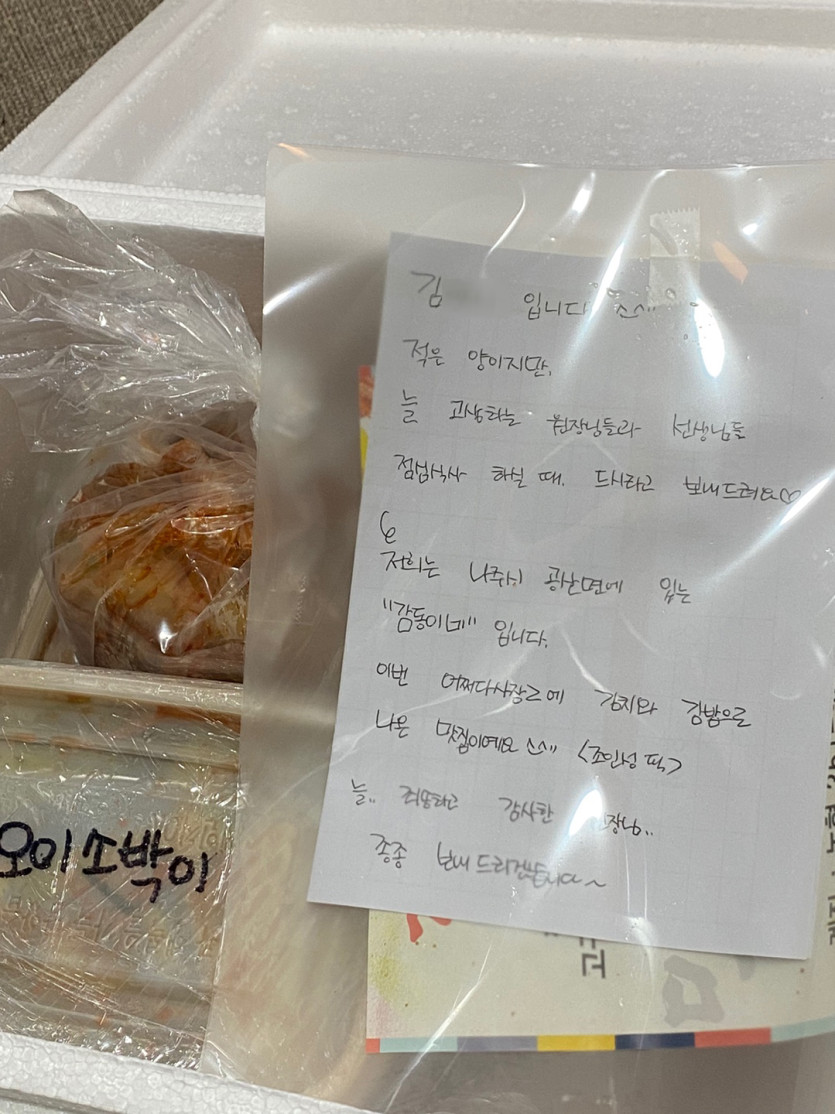 김 입니다 ^^
적은 양이지만,
늘 고생하는 원장님들과 선생님들
점심식사 하실 때. 드시라고 보내드려요♡
저희는 나주시 공산면에 있는
"감동이네" 입니다.
이번 어쩌다사장2에 김치와 김밥으로
나온 맛집이예요 ^^ <조인성 픽>
늘.. 감사한
종종 보내드리겠습니다~
오이소박이